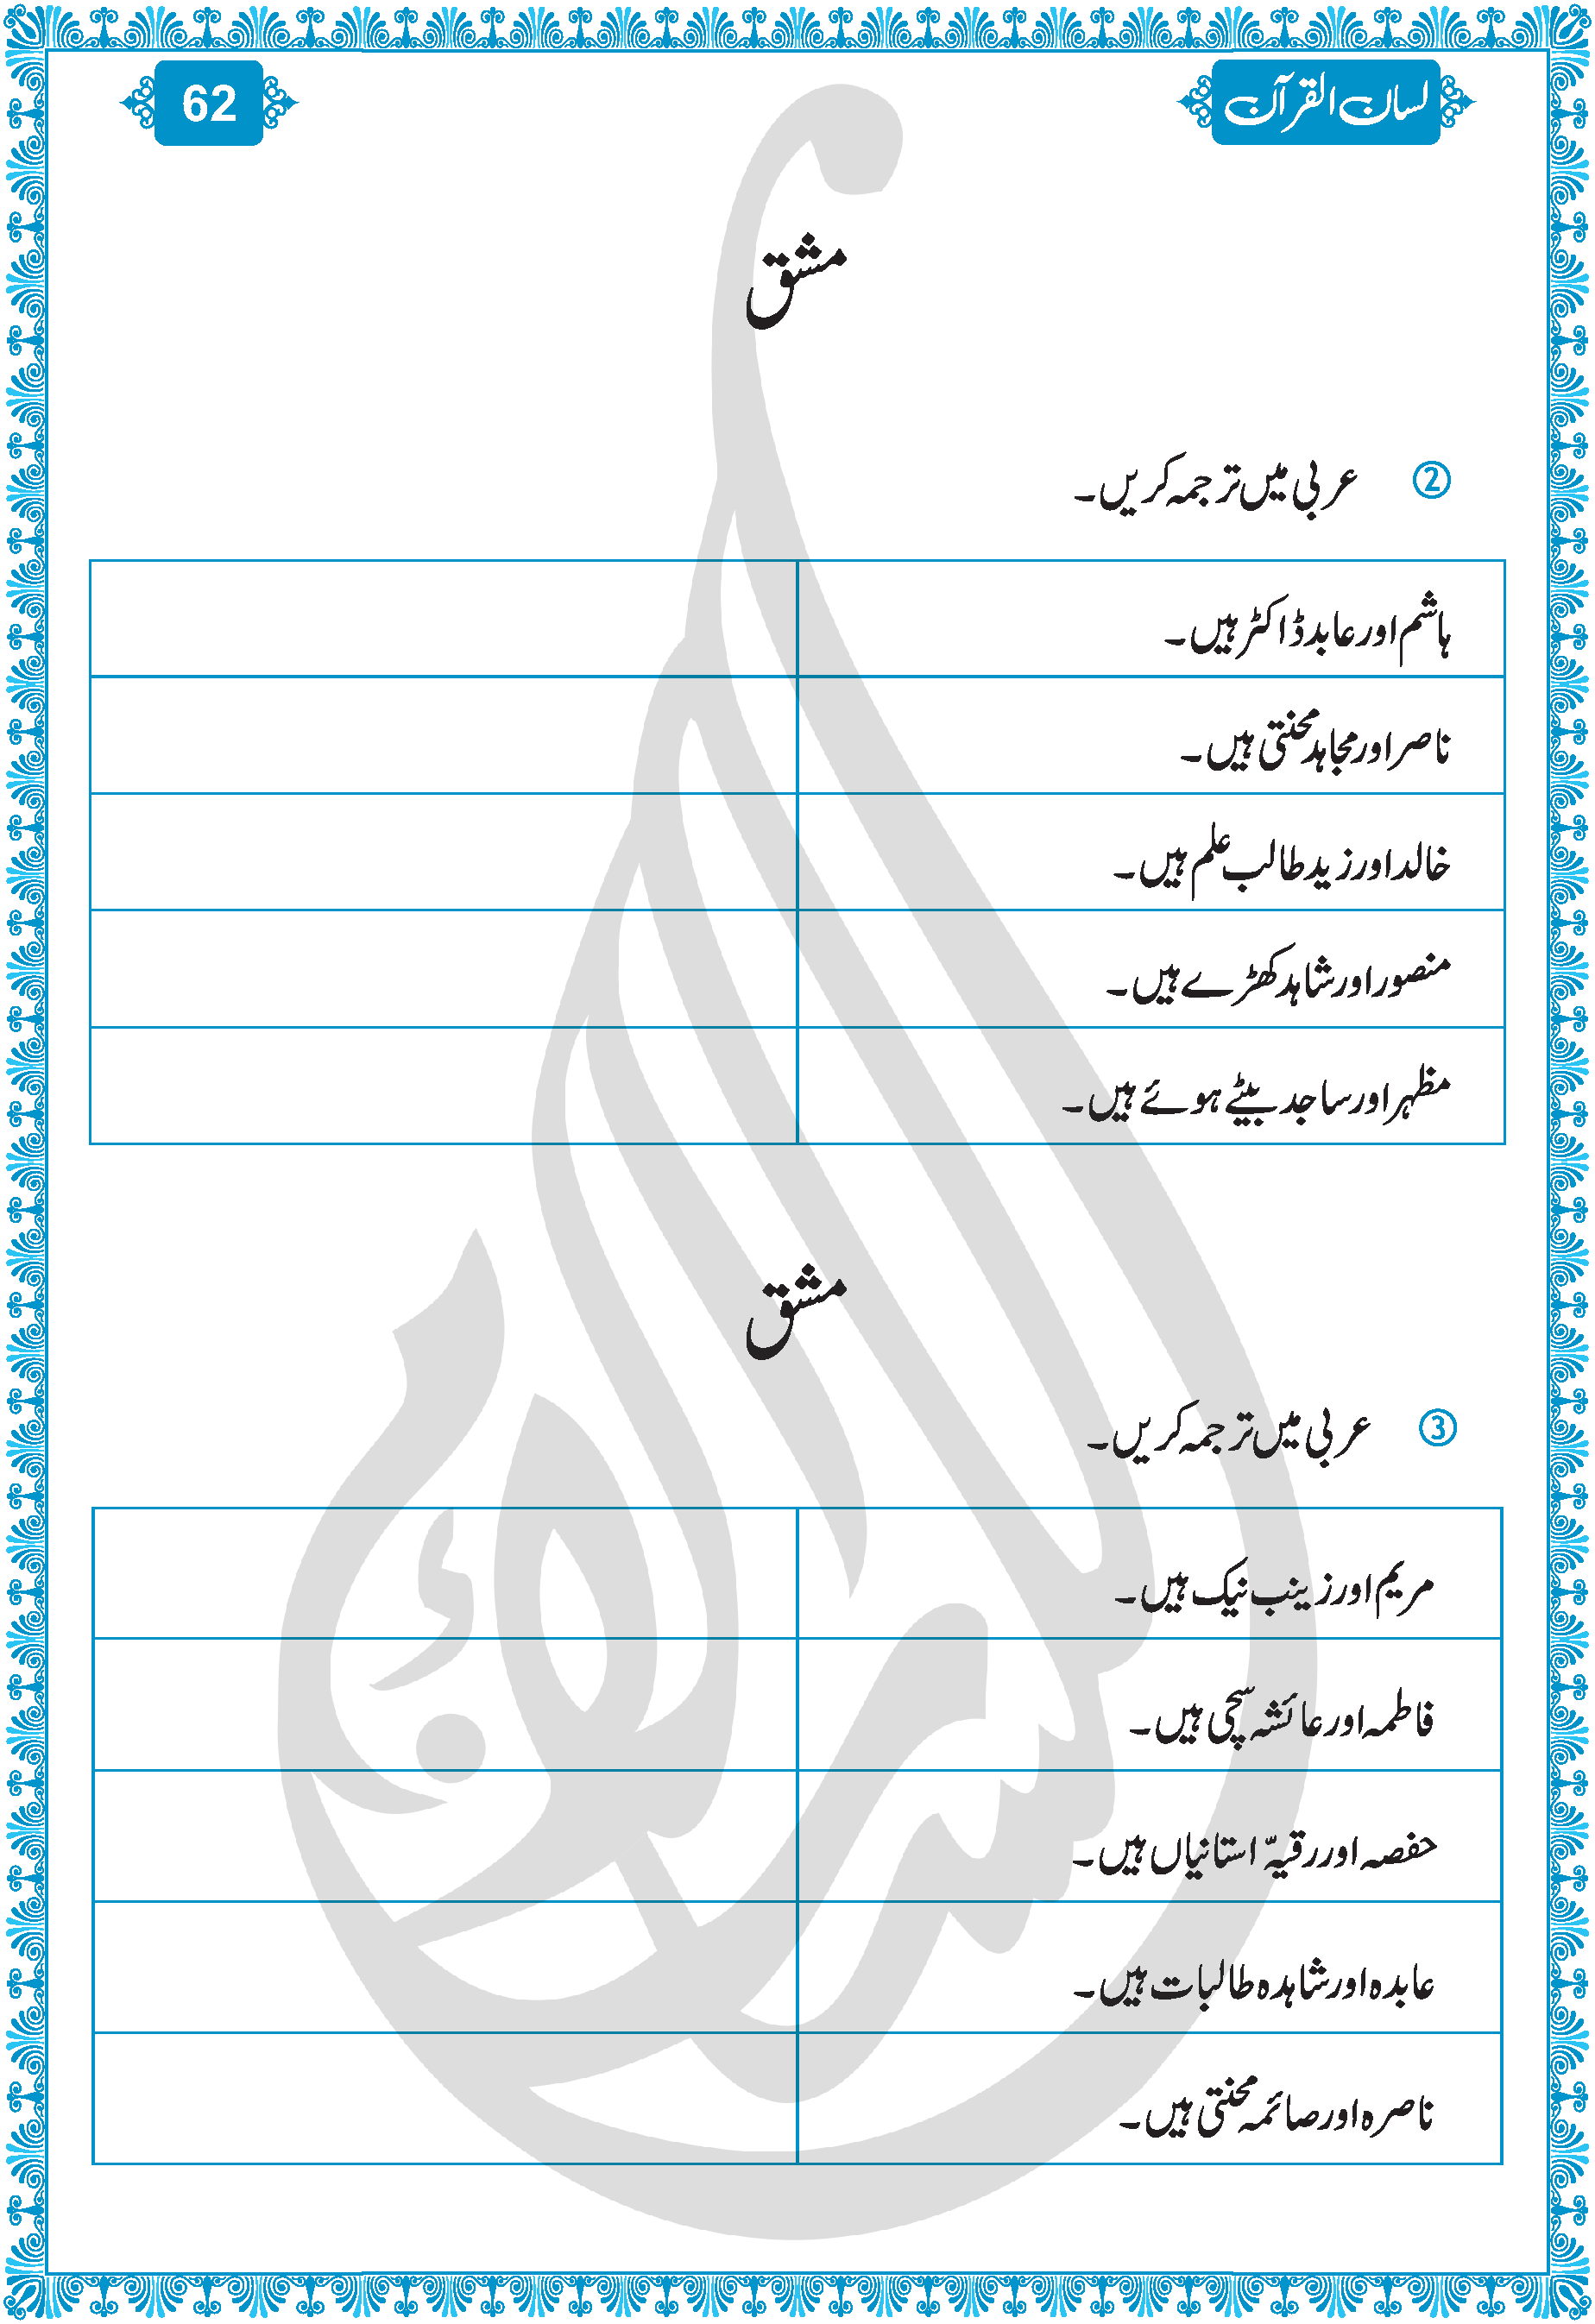 لسان القرآن
62
مشق
② عربی میں ترجمہ کریں۔
ہاشم اور عابد ڈاکٹر ہیں۔
ناصر اور مجاہد محنتی ہیں۔
خالد اور زید طالب علم ہیں۔
منصور اور شاہد کھڑے ہیں۔
مظہر اور ساجد بیٹے ہوئے ہیں۔
مشق
③ عربی میں ترجمہ کریں۔
مریم اور زینب نیک ہیں۔
فاطمہ اور عائشہ سچی ہیں۔
حفصہ اور رقیہّ استانیاں ہیں۔
عابدہ اور شاہدہ طالبات ہیں۔
ناصرہ اور صائمہ محنتی ہیں۔